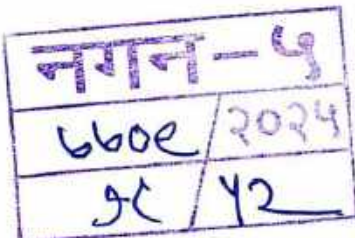 नगन - ५
७७०९/२०२५
१८/५२